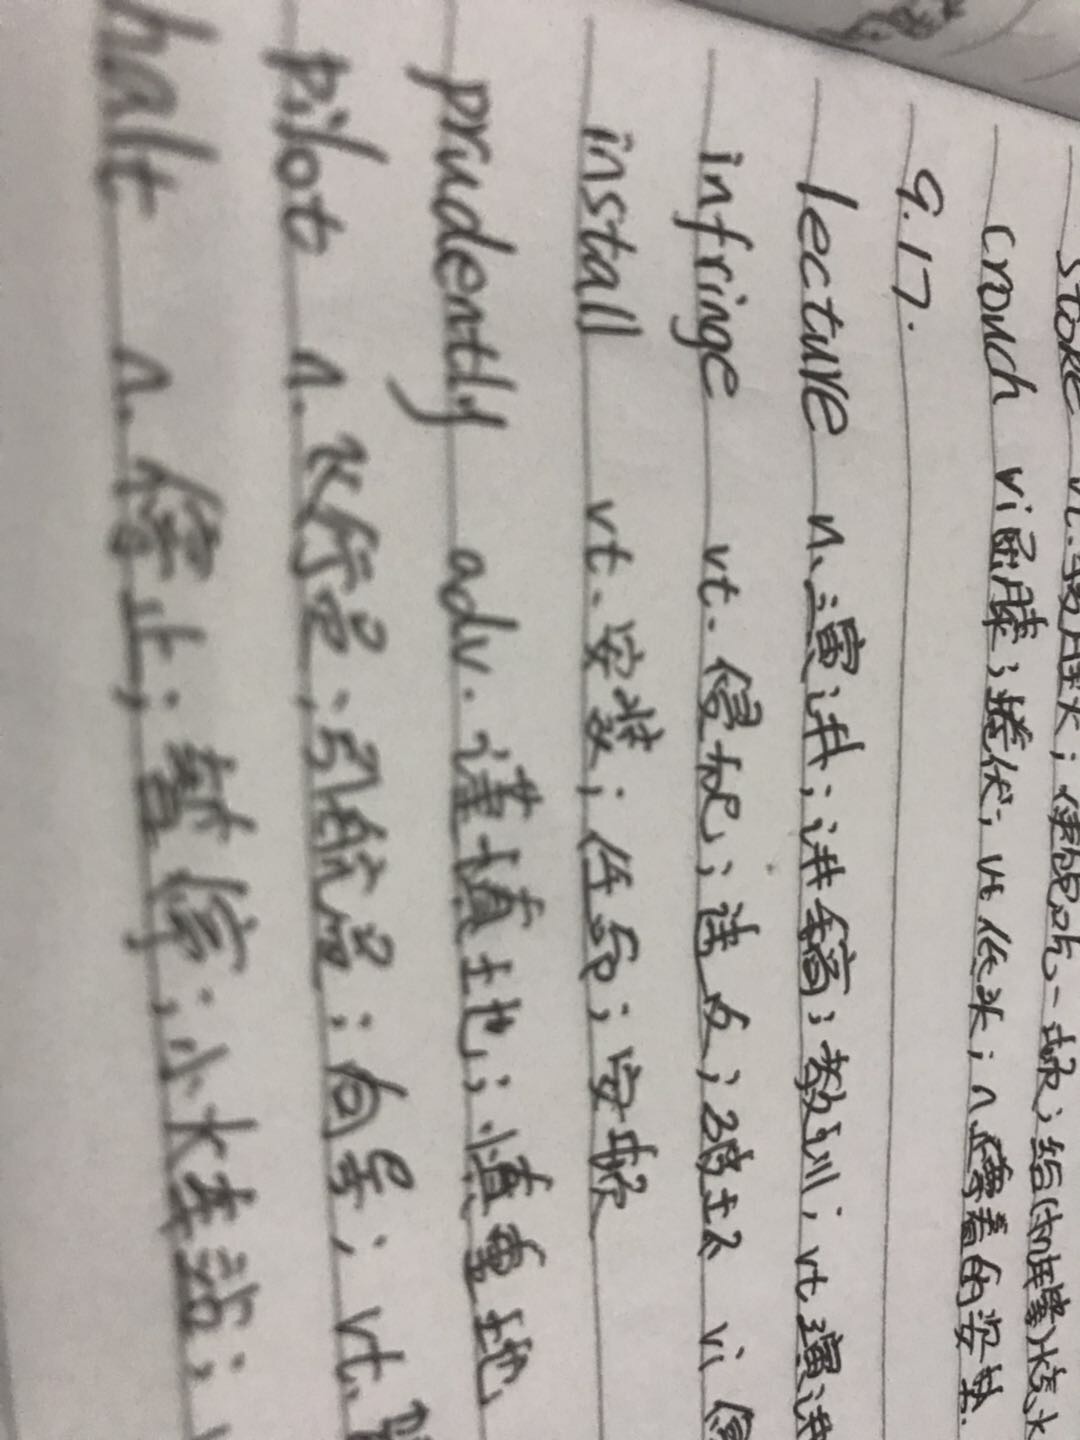 stoke vt.
crouch vi 屈膝；蜷伏；vt 低头；n.蹲着的姿势.
9.17.
lecture n.演讲；讲稿；教训；vt 演讲
infringe vt. 侵犯；违反；破坏 vi 侵
install vt. 安装；任命；安放
prudently adv. 谨慎地；慎重地
pilot n. 飞行员；引航员；向导；vt.
halt n. 停止；暂停；小火车站；